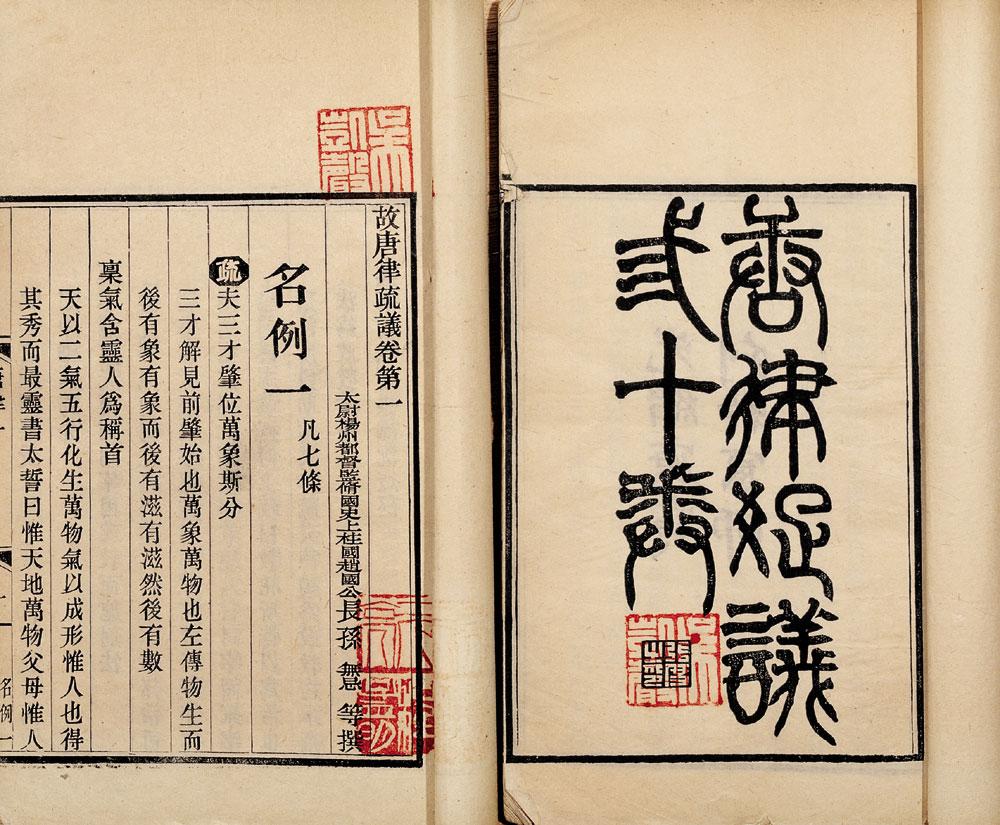 唐律疏議
弍十卷
故唐律疏議卷第一
太尉楊州都督監脩國史上柱國趙國公長孫無忌等撰
名例一 凡七條
疏夫三才肇位萬象斯分
三才解見前肇始也萬象萬物也左傳物生而
後有象有象而後有滋有滋然後有數
稟氣含靈人爲稱首
天以二氣五行化生萬物氣以成形惟人也得
其秀而最靈書太誓曰惟天地萬物父母惟人
名例一
吳